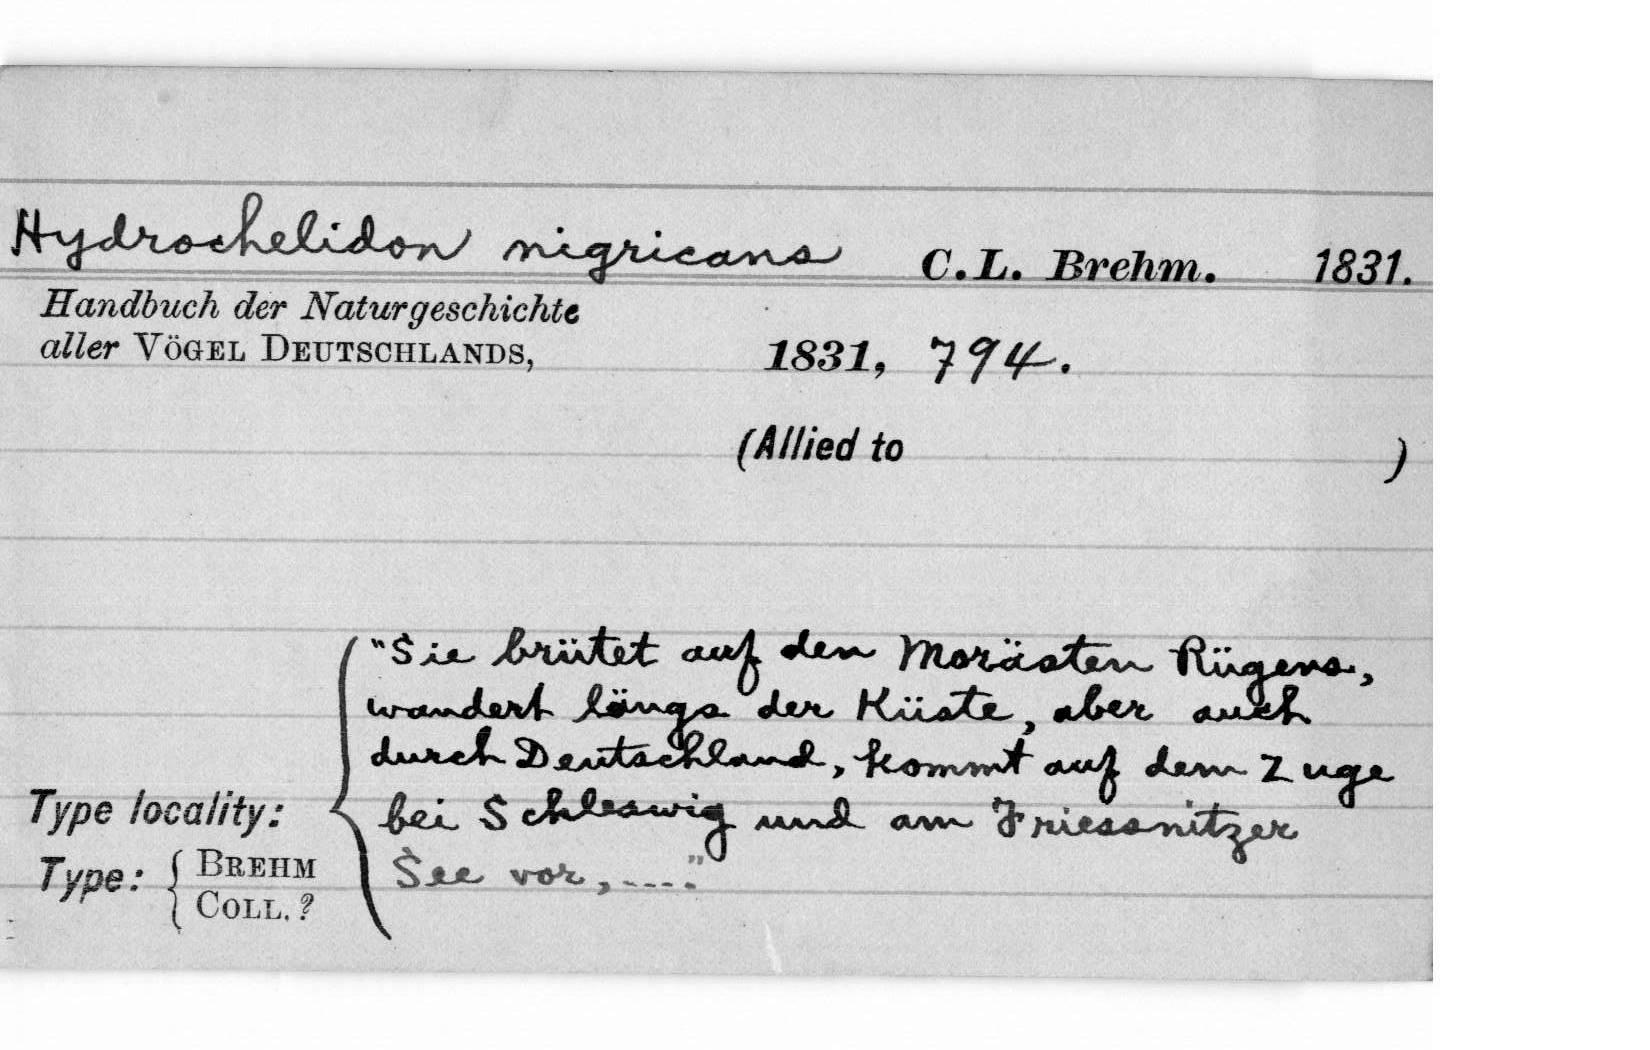 Hydrochelidon nigricans C.L. Brehm. 1831.
Handbuch der Naturgeschichte
aller VÖGEL DEUTSCHLANDS, 1831, 794.
(Allied to )
"Sie brütet auf den Morästen Rügens,
wandert längs der Küste, aber auch
durch Deutschland, kommt auf dem Zuge
Type locality: bei Schleswig und am Friessnitzer
Type: { BREHM COLL. ? See vor, ...."